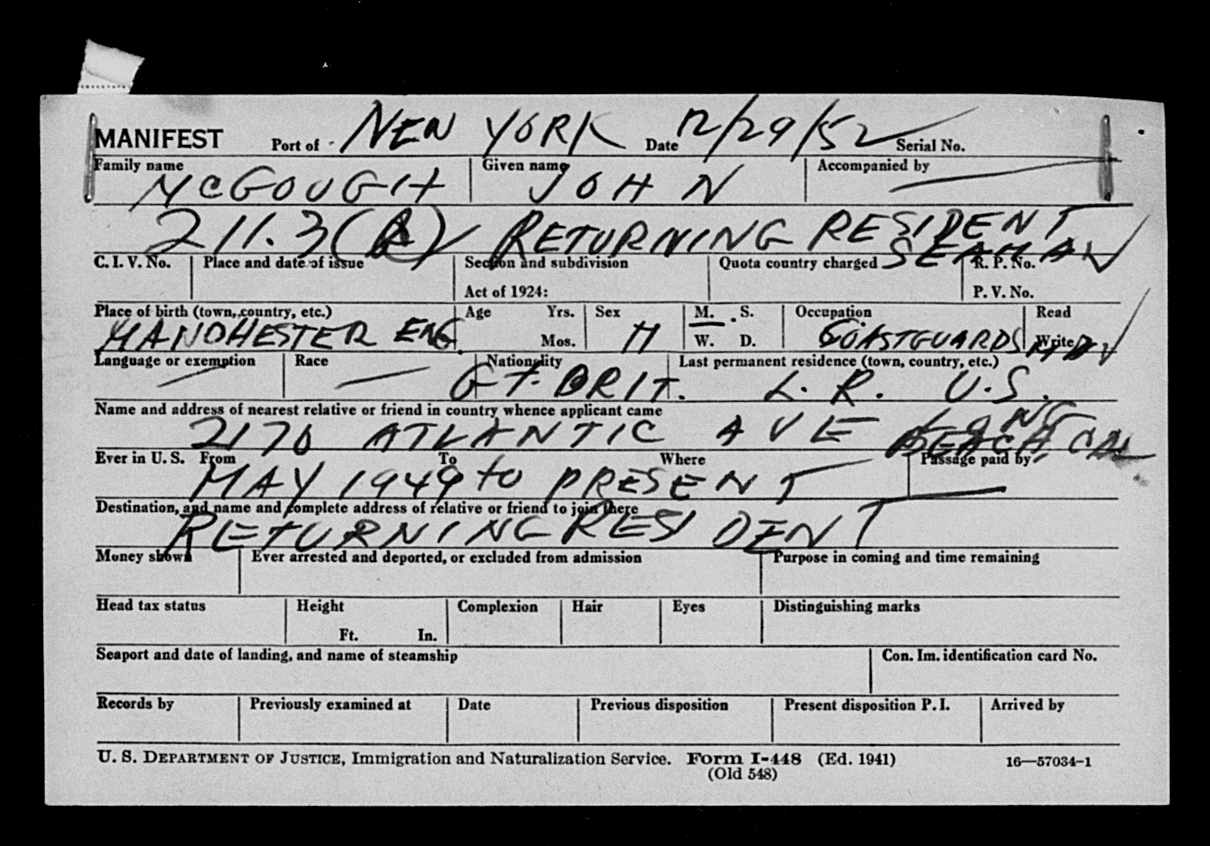 MANIFEST Port of NEW YORK Date 12/29/52 Serial No.
Family name Given name Accompanied by
McGOUGH JOHN
211.3(A) RETURNING RESIDENT
SEAMAN
C. I. V. No. Place and date of issue Section and subdivision Quota country charged R. P. No.
Act of 1924: P. V. No.
Place of birth (town, country, etc.) Age Yrs. Sex M. S. Occupation Read
MANCHESTER ENG. Mos. M W. D. COASTGUARDSMAN Write
Language or exemption Race Nationality Last permanent residence (town, country, etc.)
GT. BRIT. L. R. U.S.
Name and address of nearest relative or friend in country whence applicant came
2170 ATLANTIC AVE LONG
BEACH, CAL
Ever in U. S. From To Where Passage paid by
MAY 1949 to PRESENT
Destination, and name and complete address of relative or friend to join there
RETURNING RESIDENT
Money shown Ever arrested and deported, or excluded from admission Purpose in coming and time remaining
Head tax status Height Complexion Hair Eyes Distinguishing marks
Ft. In.
Seaport and date of landing, and name of steamship Con. Im. identification card No.
Records by Previously examined at Date Previous disposition Present disposition P. I. Arrived by
U. S. DEPARTMENT OF JUSTICE, Immigration and Naturalization Service. Form I-448 (Ed. 1941) 16—57034-1
(Old 548)